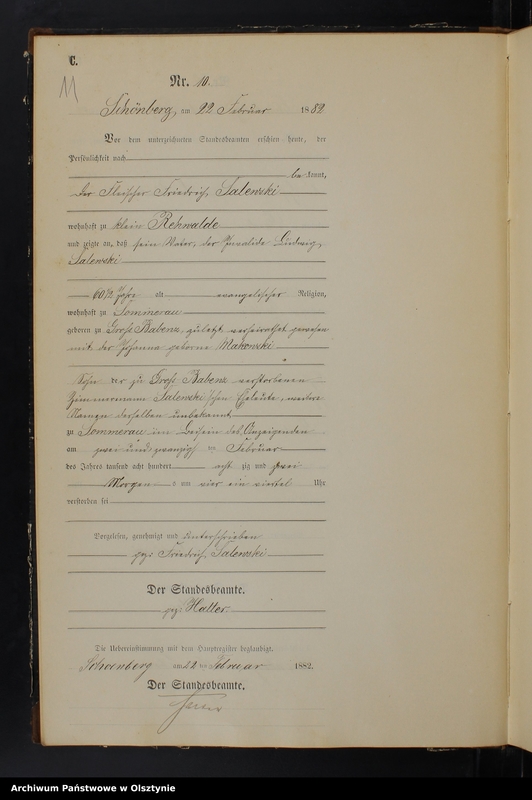 C.
11
Nr. 10.
Schönberg, am 22 Februar 1882
Vor dem unterzeichneten Standesbeamten erschien heute, der
Persönlichkeit nach
be kannt,
der Fleischer Friedrich Salewski
wohnhaft zu klein Rehwalde
und zeigte an, daß sein Vater, der Invalide Ludwig
Salewski
60 1/2 Jahr alt evangelischer Religion,
wohnhaft zu Sommerau
geboren zu Groß Babenz, zuletzt verheirathet gewesen
mit der Johanna geborne Makowski
Sohn der zu Groß Babenz verstorbenen
Zimmermann Salewski'schen Eheleute,
Namen derselben unbekannt
zu Sommerau im Beisein des Anzeigenden
am zwei und zwanzigsten Februar
des Jahres tausend acht hundert acht zig und zwei
Morgens um vier ein viertel Uhr
verstorben sei
Vorgelesen, genehmigt und unterschrieben
gez: Friedrich Salewski
Der Standesbeamte.
gez: Haller
Die Uebereinstimmung mit dem Hauptregister beglaubigt.
Schoenberg am 22 ten Februar 1882.
Der Standesbeamte.
Haller
Archiwum Państwowe w Olsztynie